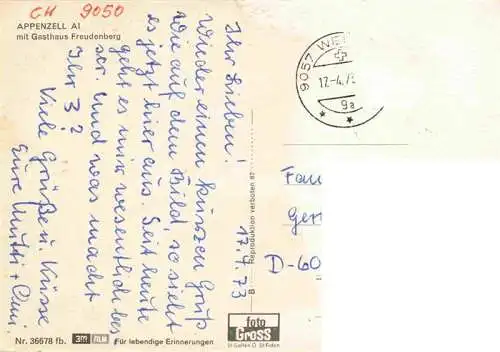 CH 9050
APPENZELL AI
mit Gasthaus Freudenberg
17.4.73
Ihr Lieben!
Wieder einen kurzen Gruß
wie auf dem Bild, so sieht
es jetzt hier aus. Seit heute
geht es mir wesentlich bes
ser. Und was macht
Ihr 3?
Viele Grüße u. Küsse
Eure Mutti +
Nr. 36678 fb.
3M FILM
Für lebendige Erinnerungen
B
Reproduktion verboten
foto
Gross
St Gallen O St Fiden
9057 WE
17.-4.7
9a
Fam
Ger
D-60